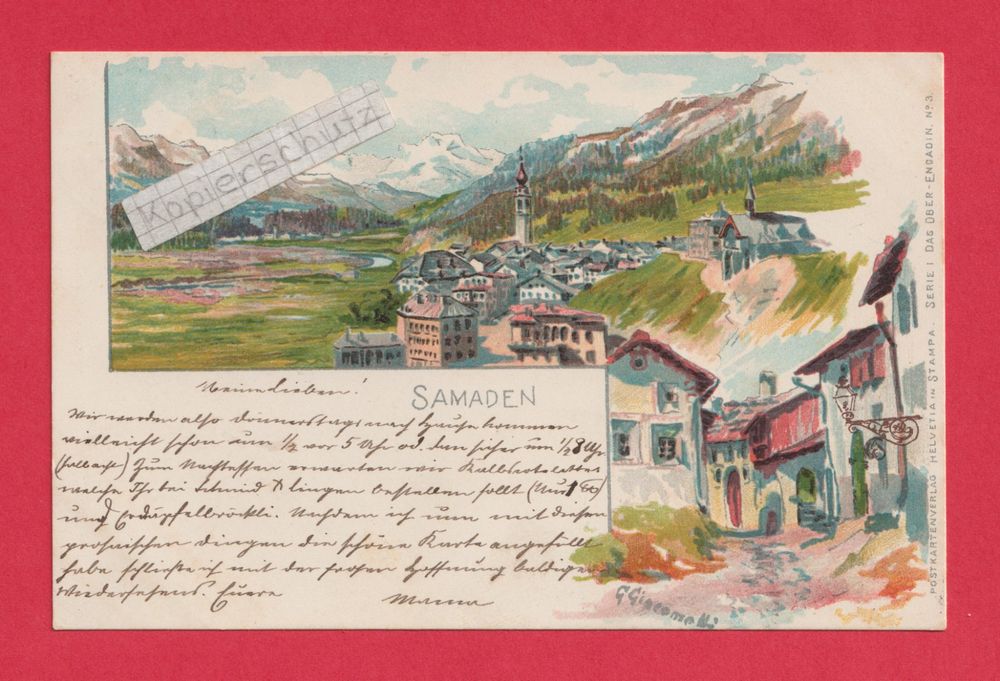 Kopierschutz
SAMADEN
Meine Lieben!
Wir werden also donnerstags nach Hause kommen
vielleicht schon um ½ vor 5 Uhr od. dan sicher um ½ 8 Uhr
(halb acht) Zum Nachtessen erwarten wir Kalbscotelettes
welche Ihr bei Schmid Klingen bestellen sollt
und Erdäpfelbröckli. Nachdem ich nun mit diesen
prosaischen Dingen die schöne Karte angefüllt
habe schließe ich mit der frohen Hoffnung baldigen
Wiedersehens. Euere
Mama
G Giacometti
POSTKARTENVERLAG HELVETIA IN STAMPA. SERIE I DAS OBER-ENGADIN. No 3.